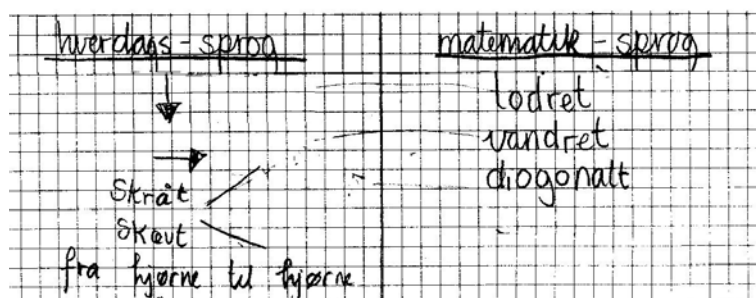 hverdags-sprog matematik-sprog
lodret
vandret
Skråt diogonalt
Skævt
fra hjørne til hjørne